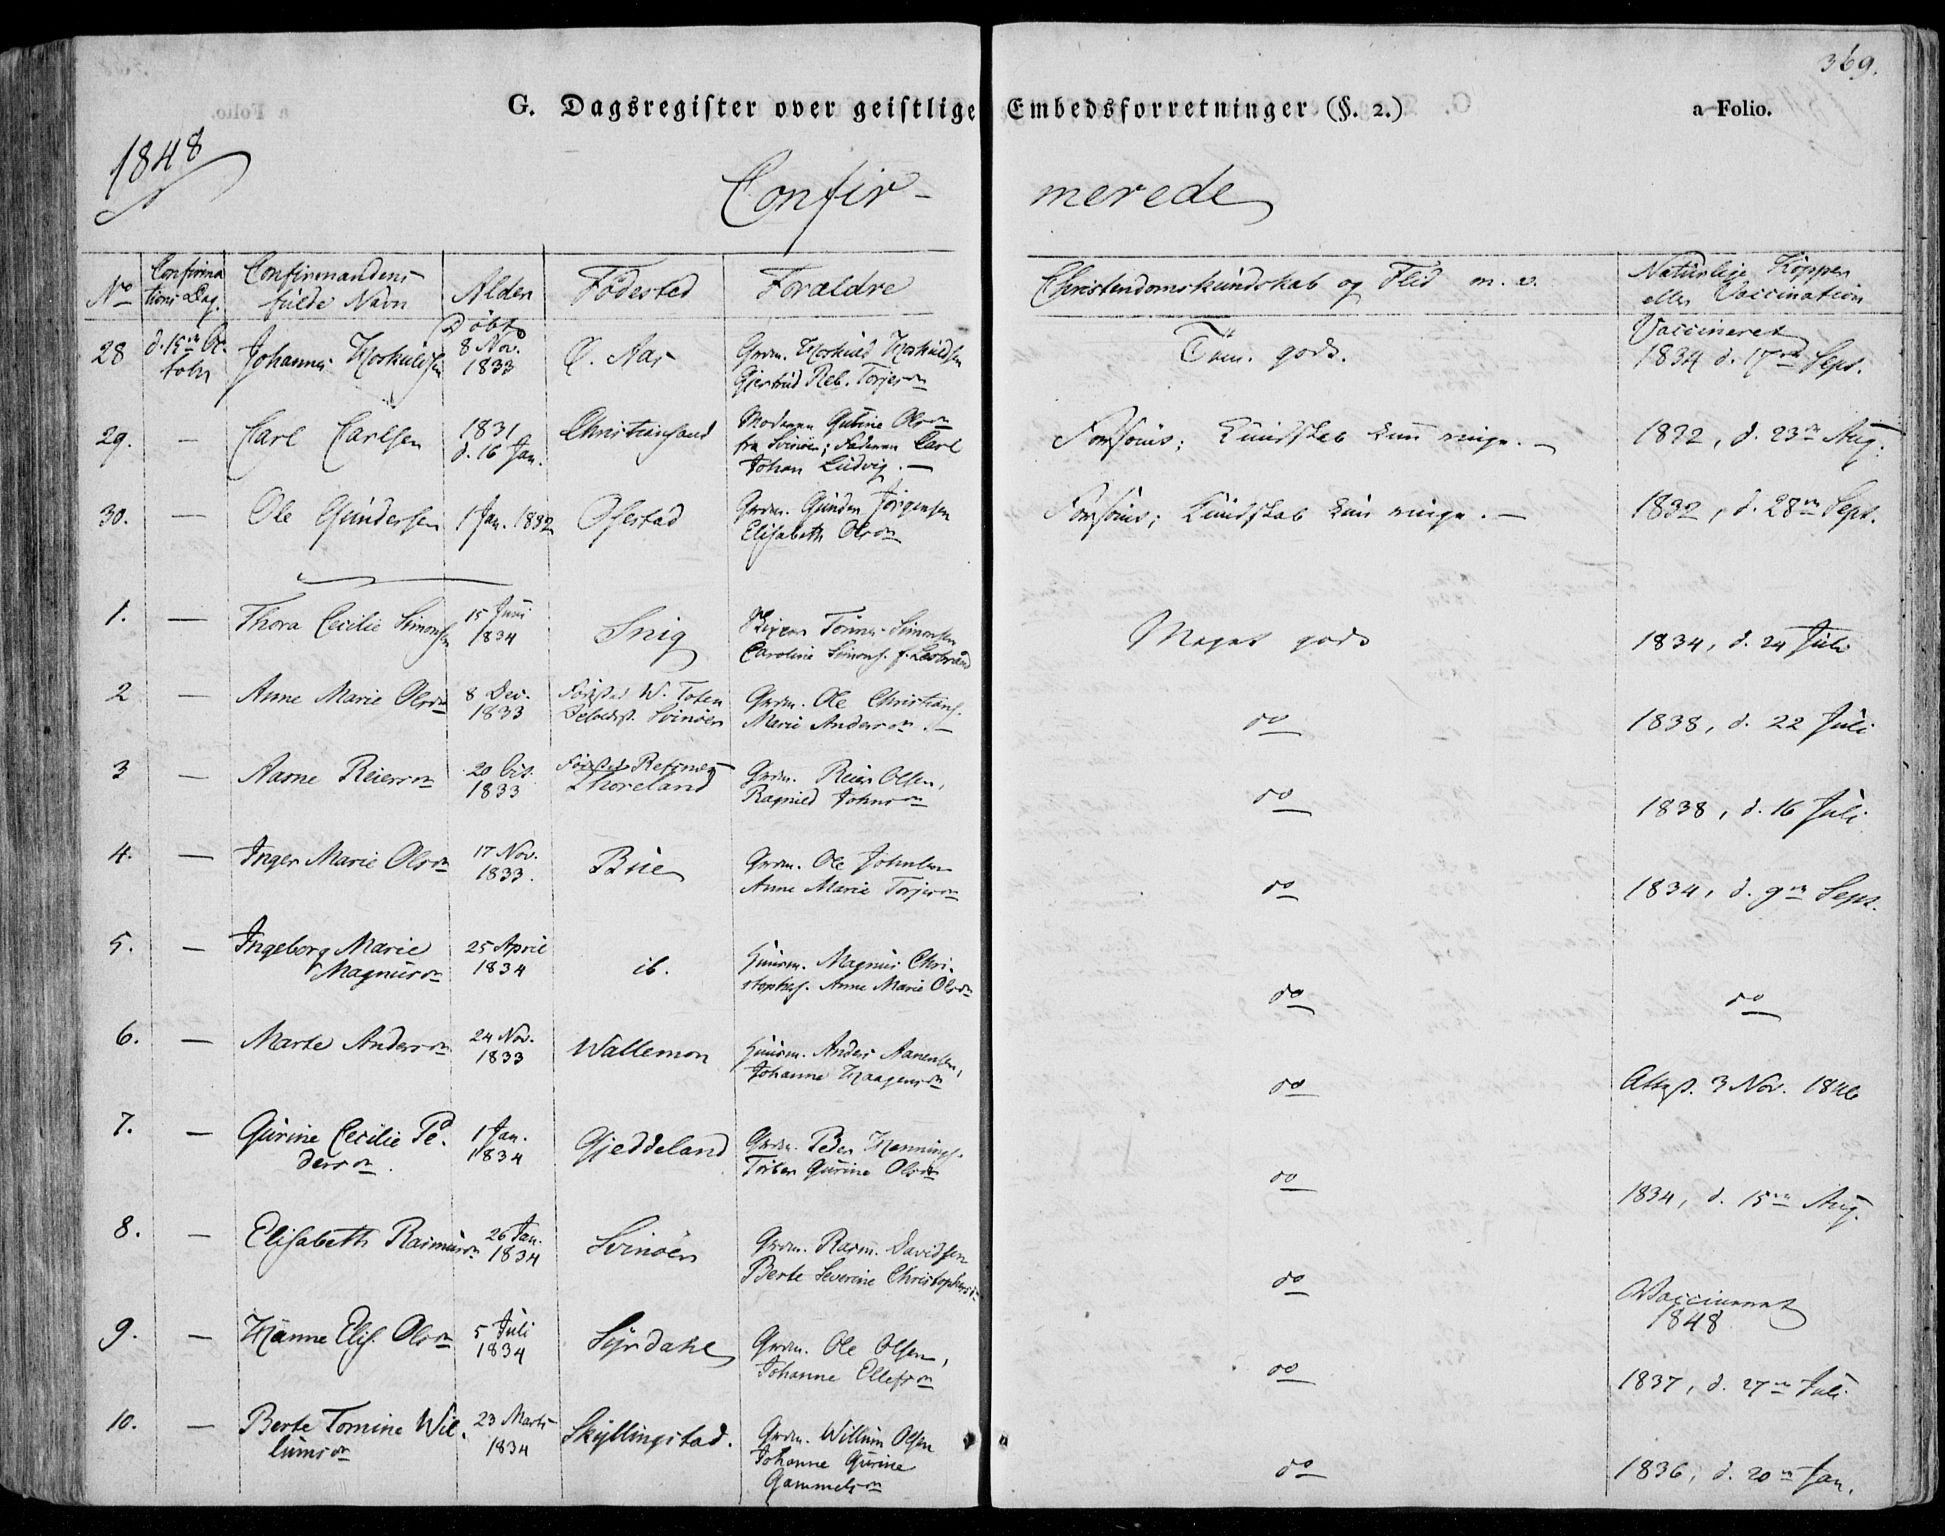 369.
G. Dagsregister over geistlige Embedsforretninger (§. 2.) a Folio.
1848
Confir- merede
No Confirmations Dag. Confirmandens fulde Navn Alder Fødested Forældre Christendomskundskab og Flid m. v. Naturlige Kopper eller Vaccination
28 d. 15de October Johannes Hoskuldsen Døbt 8 Nov. 1833 Ø. Aas Grdm. Hoskuld Hoskuldsen Gjertrud Reb. Torjesdr Tem. godt. Vaccineret 1834 d. 17de Sept.
29. — Carl Carlsen 1831 d. 16 Jan. Christiansand Moderen Gurine Olsdr fra Svinøer; Faderen Carl Johan Ludvig. — Forsømt; Kundskab kun ringe. — 1832, d. 23de Aug.
30. — Ole Gundersen 1 Jan. 1832 Ofestad Grdm. Gunder Jørgensen Elisabeth Olsdr Forsømt; Kundskab kun ringe. — 1832, d. 28de Sept.
1. — Thora Cecilie Simonsen 15 Juni 1834 Snig Skipper Tønnes Simonsen Caroline Simons. f. Meget godt 1834, d. 24 Juli
2 — Anne Marie Olsdr 8 Dec. 1833 Fødested W. Toten Svinøer Grdm. Ole Christians. Marie Andersdr. — do 1838, d. 22 Juli
3 — Aasne Reiersdr 20 Oct. 1833 Fødested Thoreland Grdm. Reier Olsen, Ragnild Johnsdr do 1838, d. 16 Juli
4. — Inger Marie Olsdr 17 Nov. 1833. Bue Grdm. Ole Johnsen Anne Marie Torjesdr do 1834, d. 9de Sept.
5. — Ingeborg Marie Magnusdr 25 April 1834 ib. Huusm. Magnus Christophs. Anne Marie Olsdr do do
6. — Marte Andersdr 24 Nov. 1833 Wallemon Huusm. Anders Aanensen, Johanne Haagensdr do Attest. 3 Nov. 1846
7. — Gurine Cecilie Pedersdr. 1 Jan. 1834 Gjeddeland Grdm. Peder Hennings. Torber Gurine Olsdr do 1834, d. 15de Aug.
8. — Elisabeth Rasmusdr 26 Jan. 1834 Svinøer Grdm. Rasm. Davidsen Berte Severine Christophersdr do Vaccineret 1848
9. — Hanne Elis. Olsdr 5 Juli 1834 Syrdahl Grdm. Ole Olsen, Johanne Ellefsdr do 1837, d. 27de Juli
10. — Berte Tomine Willumsdr 23 Marts 1834 Skyllingstad. Grdm. Willum Olsen Johanne Gurine Gammelsdr do 1836, d. 20de Jan.